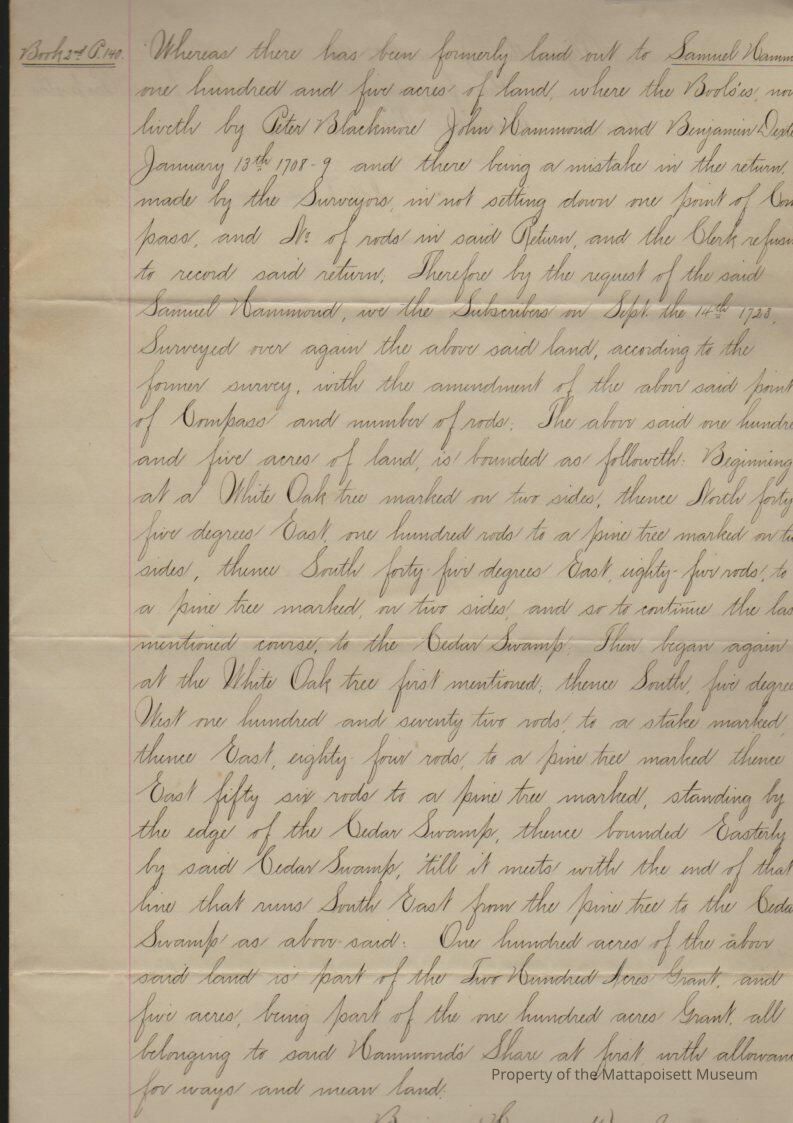 Book 2nd P. 140.
Whereas there has been formerly laid out to Samuel Hamm
one hundred and five acres of land, where the Bools'es, now
liveth by Peter Blackmore John Hammond and Benjamin Dexte
January 13th 1708-9 and there being a mistake in the return,
made by the Surveyors, in not setting down one point of Com
pass, and No of rods in said Return, and the Clerk refusin
to record said return. Therefore by the request of the said
Samuel Hammond, we the Subscribers on Sept. the 14th 1723,
Surveyed over again the above said land, according to the
former survey, with the amendment of the above said point
of Compass and number of rods: The above said one hundre
and five acres of land, is bounded as followeth: Beginning
at a White Oak tree marked on two sides, thence North forty
five degrees East, one hundred rods to a pine tree marked on tw
sides, thence South forty-five degrees East, eighty-five rods, to
a pine tree marked, on two sides, and so to continue the las
mentioned course, to the Cedar Swamp. Then began again
at the White Oak tree first mentioned; thence South, five degree
West one hundred and seventy two rods, to a stake marked,
thence East, eighty four rods, to a pine tree marked thence
East fifty six rods to a pine tree marked, standing by
the edge of the Cedar Swamp, thence bounded Easterly
by said Cedar Swamp, 'till it meets with the end of that
line that runs South East from the pine tree to the Ceda
Swamp as above said: One hundred acres of the above
said land is part of the Two Hundred Acres Grant, and
five acres, being part of the one hundred acres Grant, all
belonging to said Hammond's Share at first with allowan
for ways and mean land:
Property of the Mattapoisett Museum